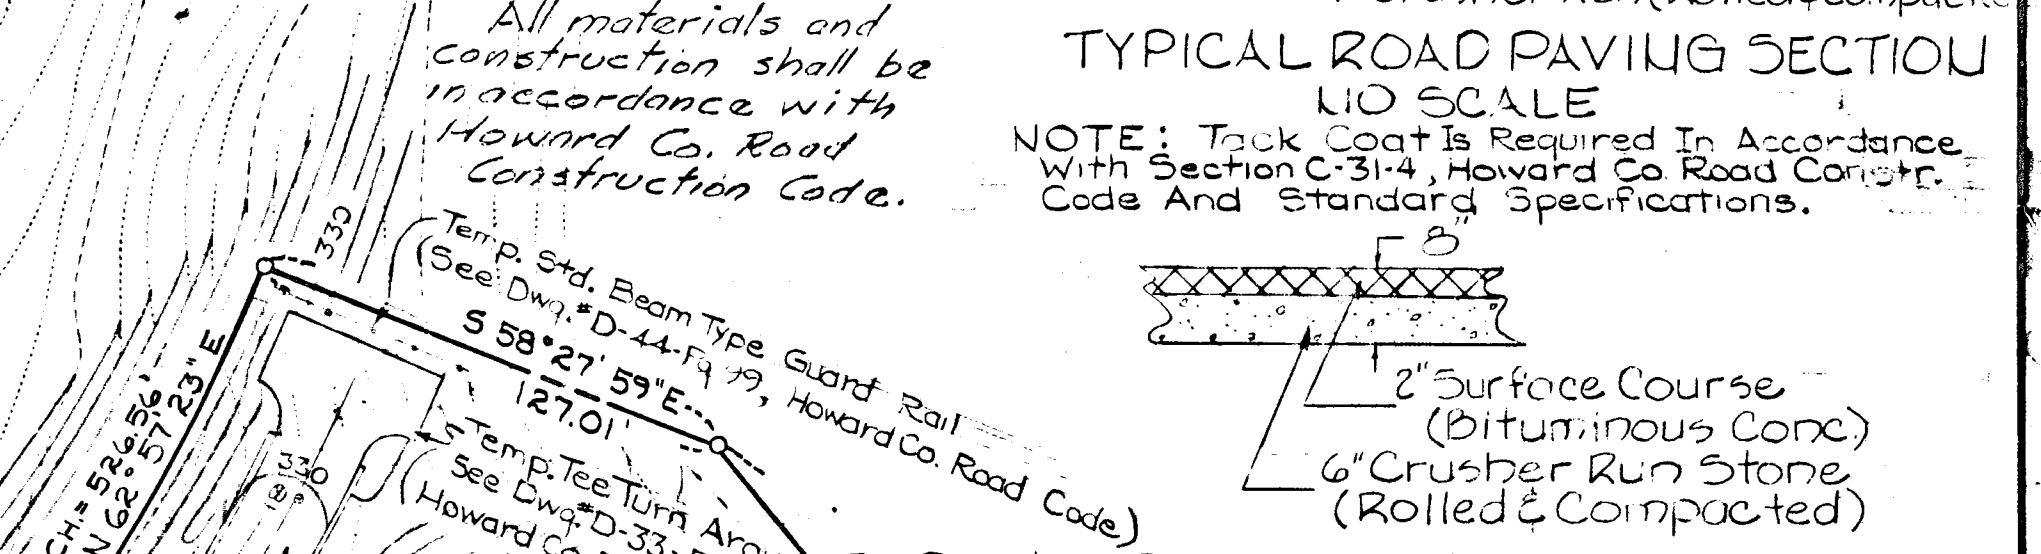 All materials and
construction shall be
in accordance with
Howard Co. Road
Construction Code.
TYPICAL ROAD PAVING SECTION
NO SCALE
NOTE: Tack Coat Is Required In Accordance
With Section C-31-4, Howard Co. Road Constr.
Code And Standard Specifications.
8"
2" Surface Course
(Bituminous Conc.)
6" Crusher Run Stone
(Rolled & Compacted)
330
Temp. Std. Beam Type Guard Rail
(See Dwg. #D-44-Fg 99, Howard Co. Road Code)
S 58° 27' 59" E
127.01'
Temp. Tee Turn
See Dwg. #D-33-
(Howard Co.
330
CH.= 526.56'
N 62° 57' 23" E